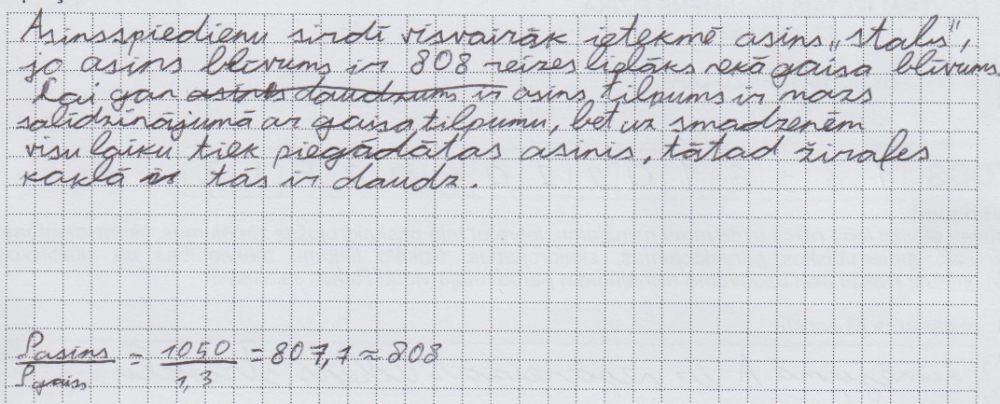 Asinsspiedienu sirdī visvairāk ietekmē asins „stabs”,
jo asins blīvums ir 808 reizes lielāks nekā gaisa blīvums.
Lai gan asins daudzums ir asins tilpums ir mazs
salīdzinājumā ar gaisa tilpumu, bet uz smadzenēm
visu laiku tiek piegādātas asinis, tātad žirafes
kaklā ir tās ir daudz.
ρasins/ρgaiss = 1050/1,3 = 807,7 ≈ 808